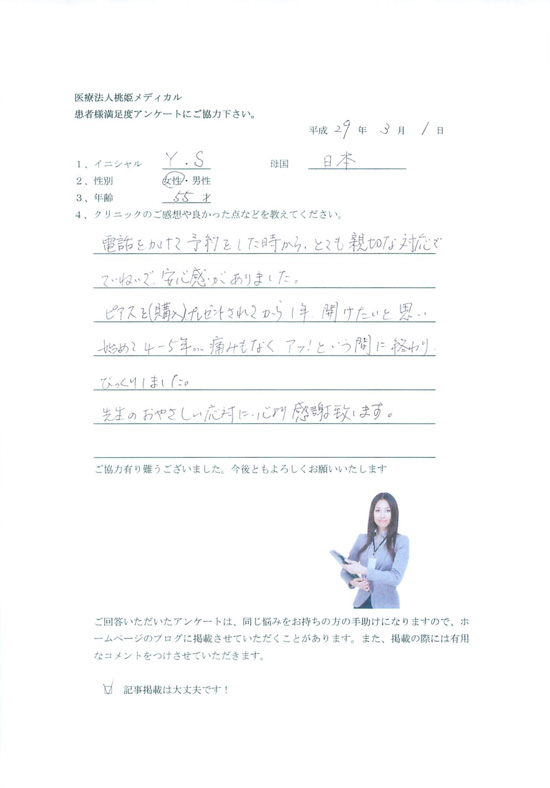 医療法人桃姫メディカル
患者様満足度アンケートにご協力下さい。
平成 29 年 3 月 1 日
1、イニシャル Y.S 母国 日本
2、性別 女性・男性
3、年齢 55才
4、クリニックのご感想や良かった点などを教えてください。
電話をかけて予約をした時から、とても親切な対応で
ていねいで、安心感がありました。
ピアスを(購入)プレゼントされてから1年、開けたいと思い
始めて4-5年… 痛みもなく アッ!という間に終わり、
びっくりしました。
先生のおやさしい応対に、心より感謝致します。
ご協力有り難うございました。今後ともよろしくお願いいたします
ご回答いただいたアンケートは、同じ悩みをお持ちの方の手助けになりますので、ホ
ームページのブログに掲載させていただくことがあります。また、掲載の際には有用
なコメントをつけさせていただきます。
記事掲載は大丈夫です!